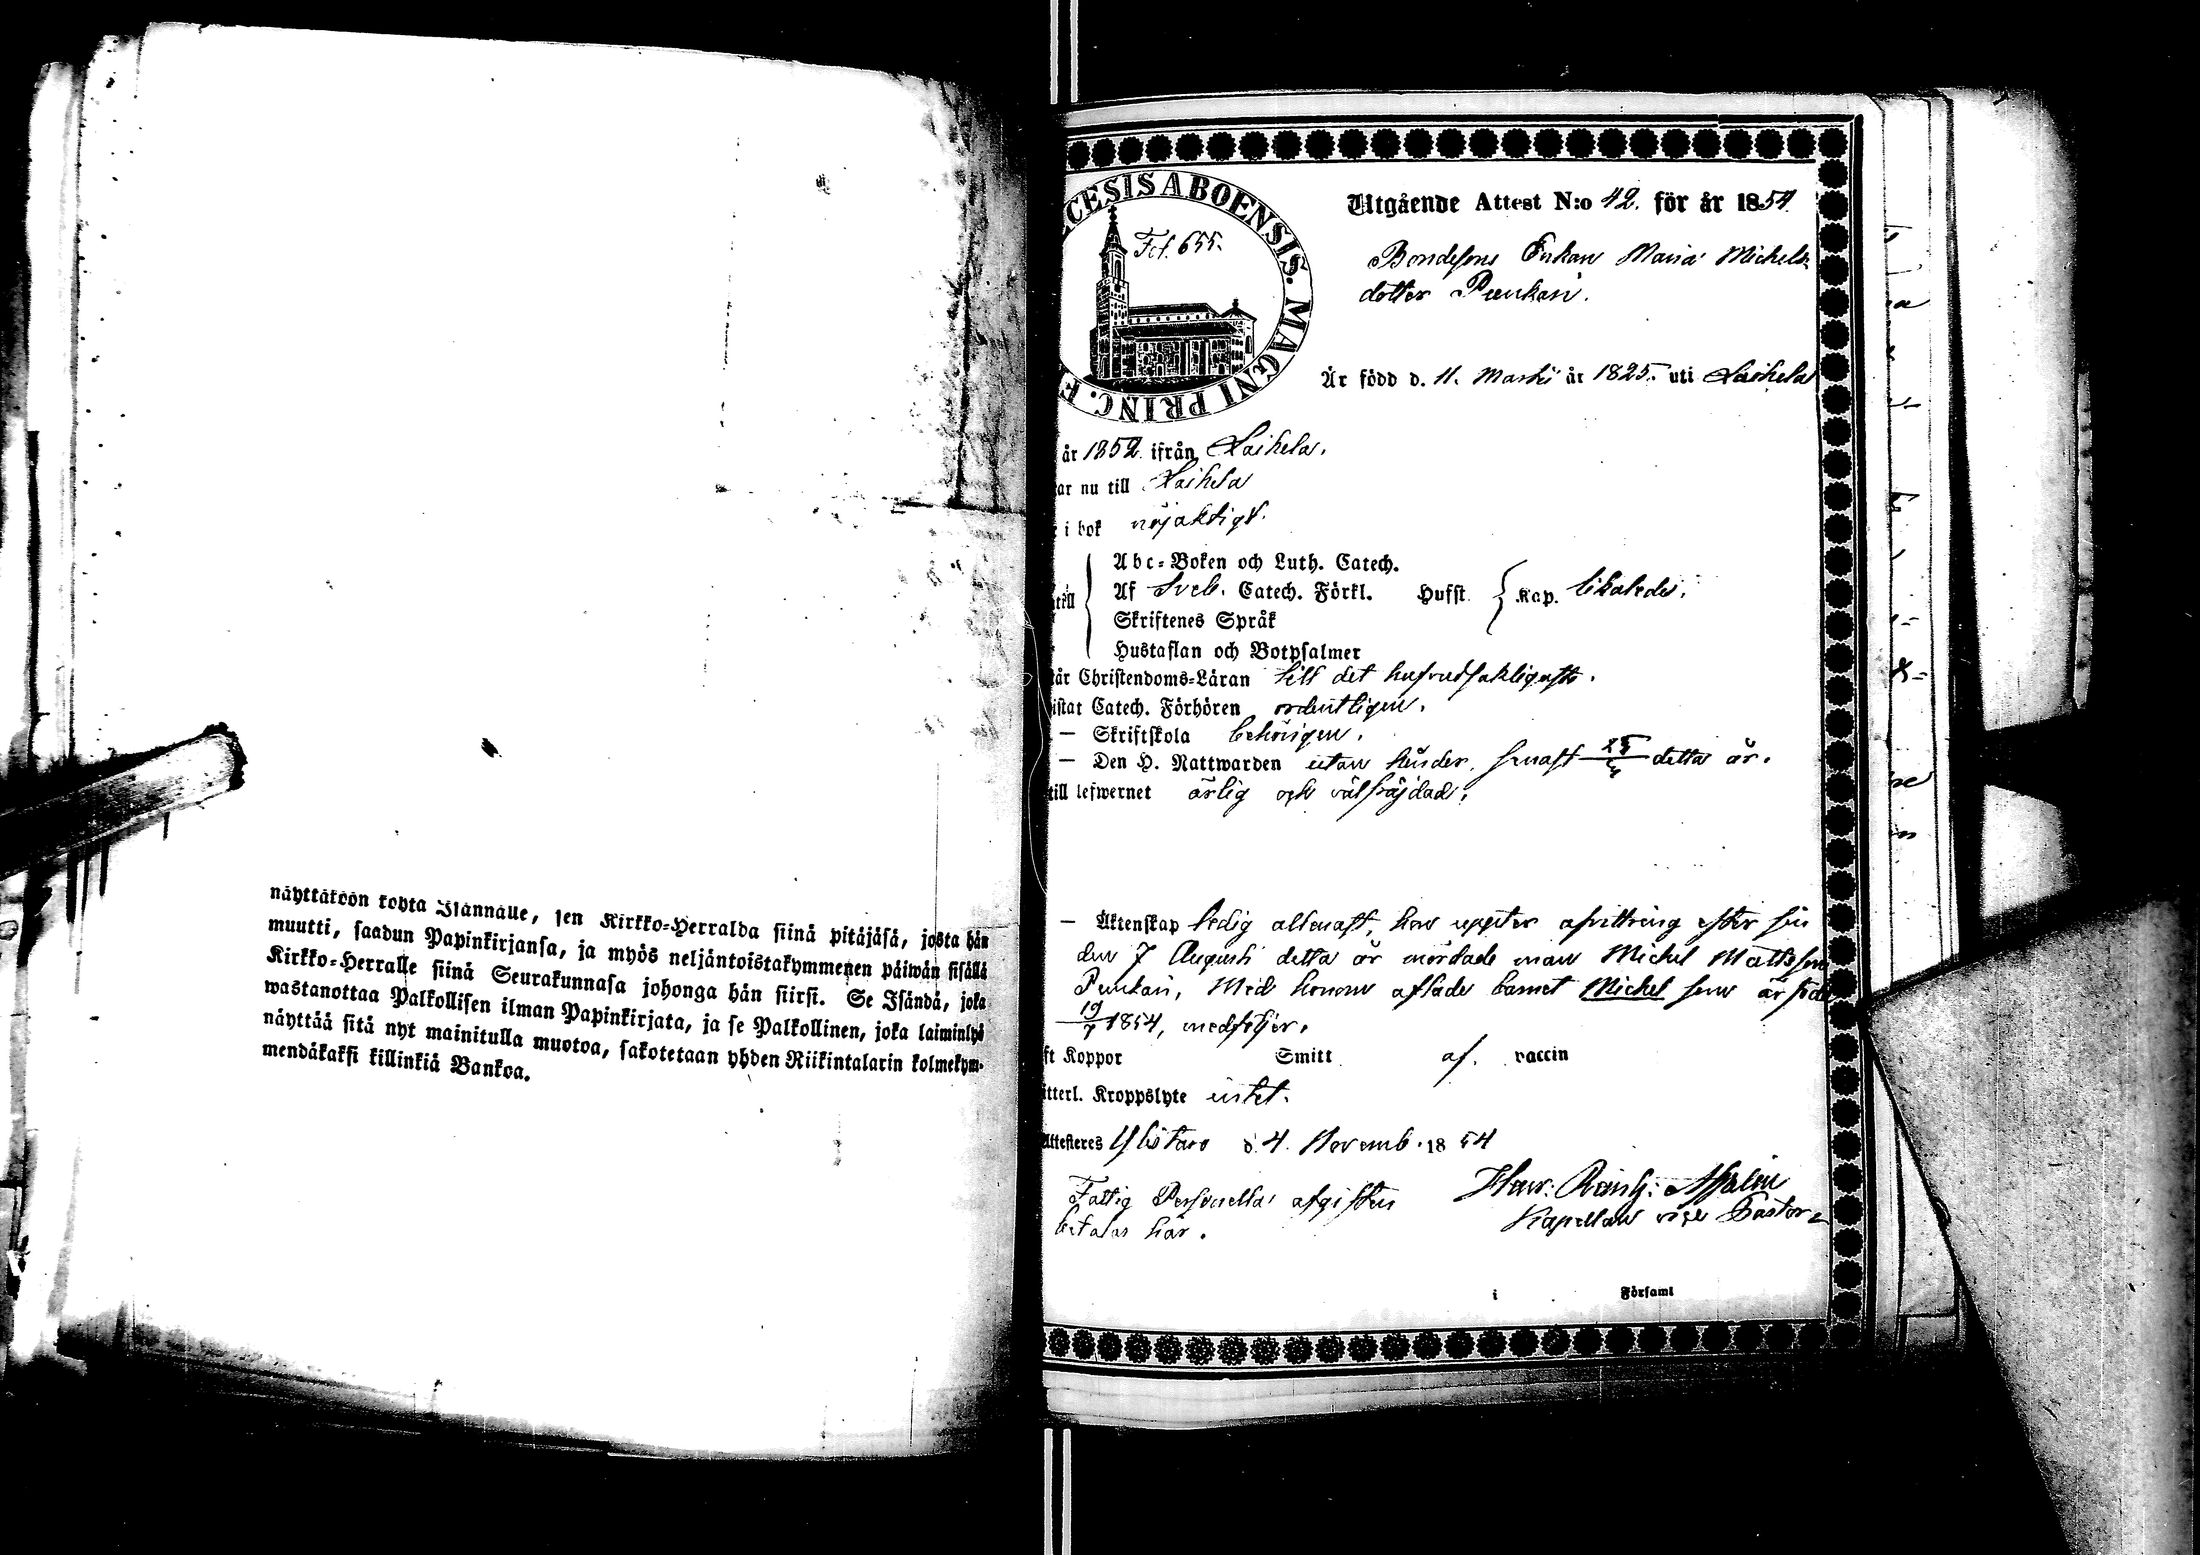 näyttäköön kohta Isännälle, sen Kirkko-Herralda siinä pitäjäsä, josta hän
muutti, saadun Papinkirjansa, ja myös neljäntoistakymmenen päiwän sisällä
Kirkko-Herralle siinä Seurakunnasa johonga hän siirsi. Se Isändä, joka
wastanottaa Palkollisen ilman Papinkirjata, ja se Palkollinen, joka laiminlyö
näyttää sitä nyt mainitulla muotoa, sakotetaan yhden Riikintalarin kolmekym-
mendäkaksi killinkiä Bankoa.
CESIS ABOENSIS. MAGNI PRINC. F
Fol. 655.
Utgående Attest N:o 42. för år 1854.
Bondesons Enkan Maria Michels
dotter Punkari.
Är född d. 11. Martii år 1825. uti Laihela
år 1852 ifrån Laihela.
ar nu till Laihela
i bok nöjaktigt.
Abc-Boken och Luth. Catech.
Af Sveb. Catech. Förkl. Hufst. Kap.
Skriftenes Språk
Hustaflan och Botpsalmer
år Christendoms-Läran till det hufvudsakligaste.
istat Catech. Förhören ordentligen.
— Skriftskola behörigen.
— Den H. Nattwarden utan hinder, senast detta år.
till lefwernet ärlig och välfräjdad.
— Äktenskap ledig alltenast, hon uppter afvittring efter sin
den 7 Augusti detta år mördade man Michel Mattsson
Punkari, Med honom aflade barnet Michel som är född
19/7 1854, medföljer.
ft Koppor Smitt af. vaccin
itterl. Kroppslyte intet.
Attesteres Ylistaro d. 4. Novemb. 1854
Fattig Personella afgiften
betalas här.
Henr: Reinh: Assalin
Kapellan vice Pastor
i Församl